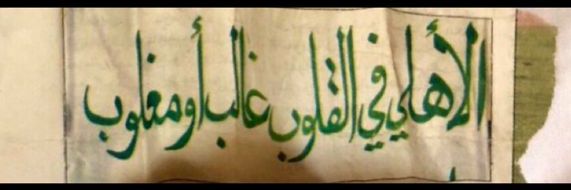 الأهلي في القلوب غالب أو مغلوب